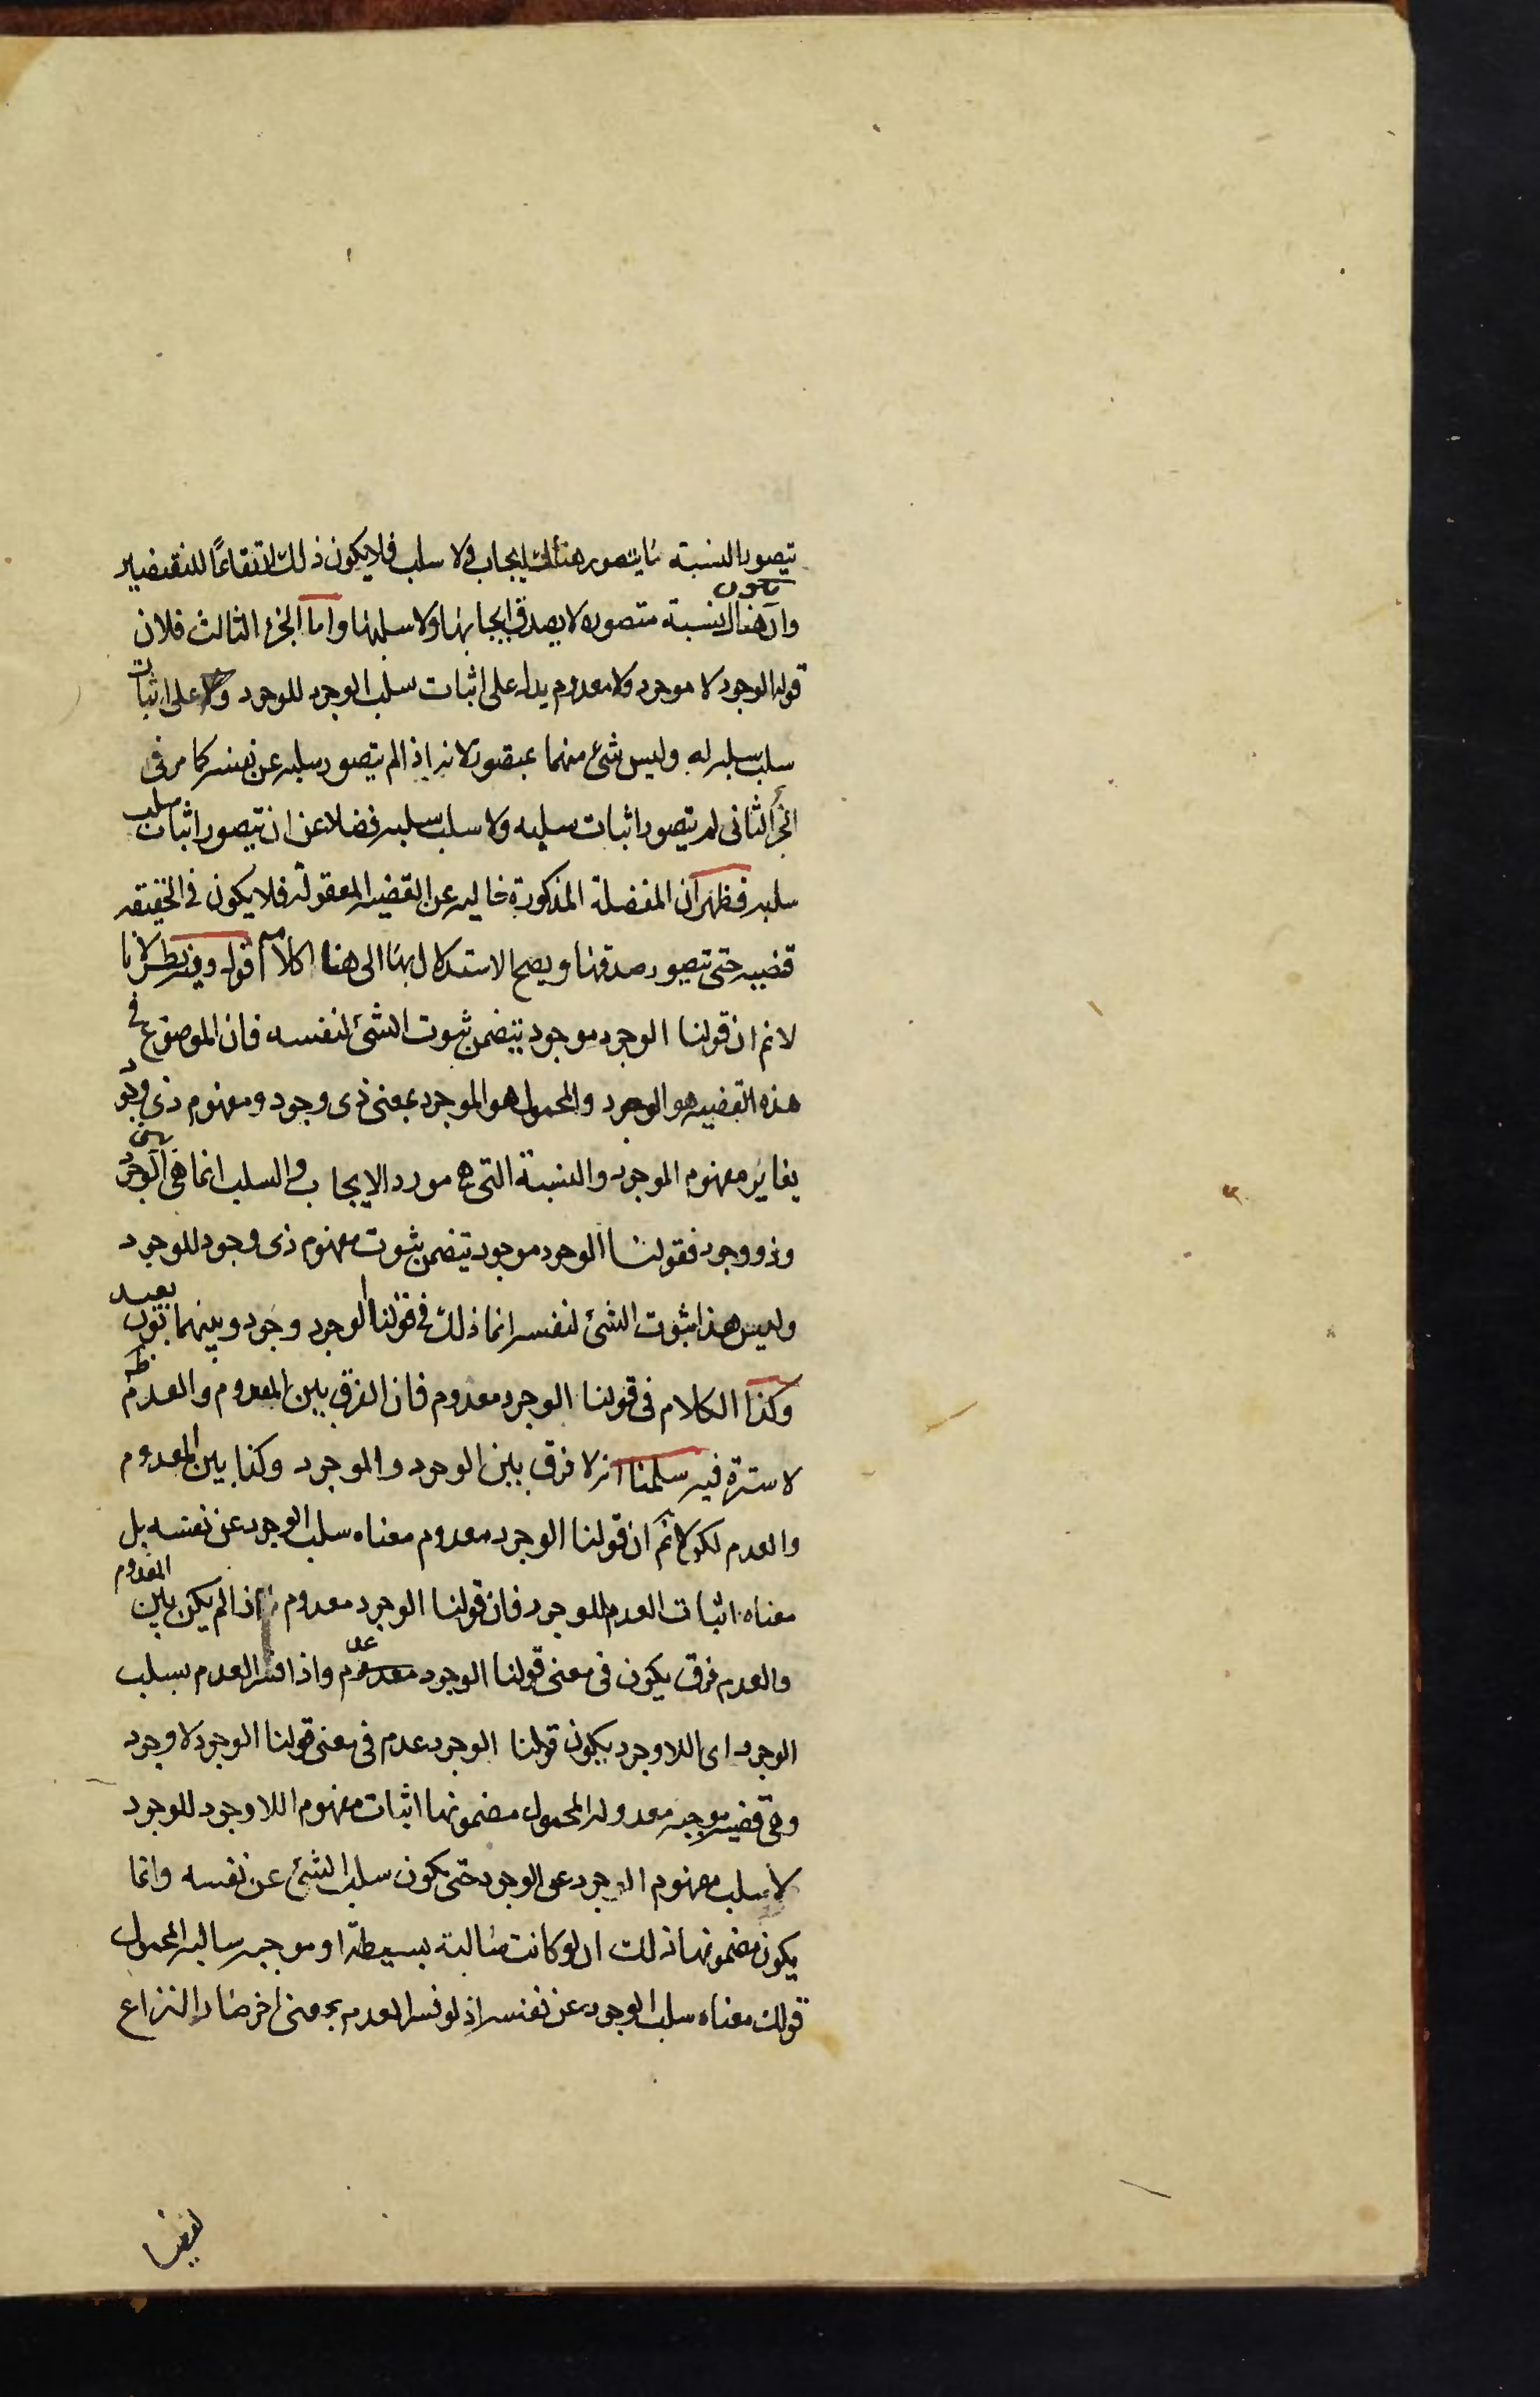 يتصور النسبة لا يتصور هناك ايجاب ولا سلب فلا يكون ذلك ارتفاعًا للنقيضين
وان هناك نسبة متصوره لا يصدق ايجابها ولا سلبها واما الجزء الثالث فلان
يكون
قوله الوجود لا موجود ولا معدوم يدل على اثبات سلب الوجود للوجود وعلى اثبات
سلب سلبه له وليس شئ منهما بمتصور لانه اذا لم يتصور سلبه عن نفسه كما مر فى
الجزء الثانى لم يتصور اثبات سلبه ولا سلب سلبه فضلا عن ان يتصور اثبات سلب
سلبه فظهر ان المنفصلة المذكورة خاليه عن القضيه المعقوله فلا يكون فى الحقيقه
قضيه حتى يتصور صدقها ويصح الاستدلال بها الى هنا كلامه قوله وفيه نظر لانا
لانم ان قولنا الوجود موجود يتضمن ثبوت الشئ لنفسه فان الموضوع فى
هذه القضيه هو الوجود والمحمول هو الموجود بمعنى ذى وجود ومفهوم ذى وجود
يغاير مفهوم الوجود والنسبة التى هى مورد الايجاب والسلب انما هى بين الوجود
وذو وجود فقولنا الوجود موجود يتضمن ثبوت مفهوم ذى وجود للوجود
وليس هذا ثبوت الشئ لنفسه انما ذلك فى قولنا الوجود وجود وبينهما بون بعيد
وكذا الكلام فى قولنا الوجود معدوم فان الفرق بين المعدوم والعدم ظ
لا سترة فيه سلمنا انه لا فرق بين الوجود والموجود وكذا بين المعدوم
والعدم لكن لانم ان قولنا الوجود معدوم معناه سلب الوجود عن نفسه بل
معناه اثبات العدم للوجود فان قولنا الوجود معدوم اذا لم يكن بين المعدوم
والعدم فرق يكون فى معنى قولنا الوجود عدم واذا فسر العدم بسلب
الوجود اى اللاوجود يكون قولنا الوجود عدم فى معنى قولنا الوجود لا وجود
وهى قضيه موجبه معدوله المحمول مضمونها اثبات مفهوم اللاوجود للوجود
لا سلب مفهوم الوجود عن الوجود حتى يكون سلب الشئ عن نفسه وانما
يكون مضمونها ذلك ان لو كانت سالبة بسيطة او موجبه سالبه المحمول
قولك معناه سلب الوجود عن نفسه اذ لو فسر العدم بمعنى اخر صار النزاع
لفظيا